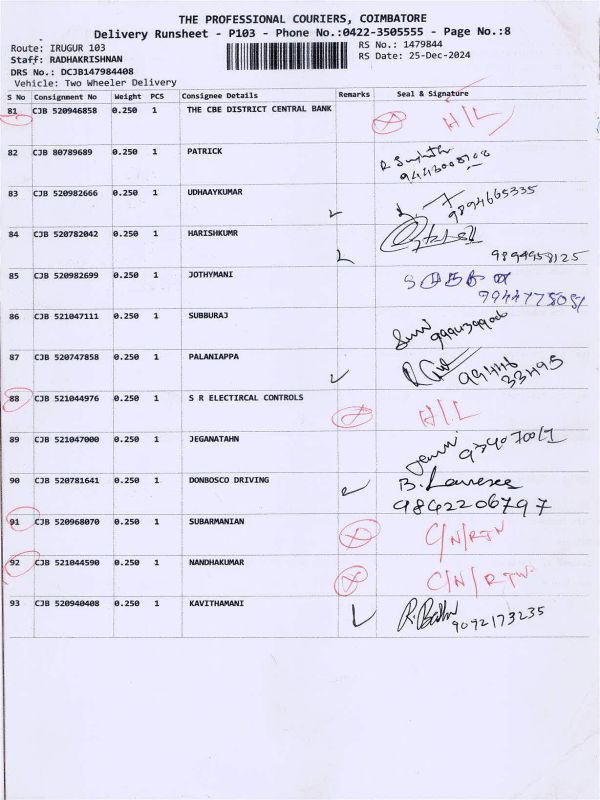 THE PROFESSIONAL COURIERS, COIMBATORE
Delivery Runsheet - P103 - Phone No.:0422-3505555 - Page No.:8
Route: IRUGUR 103
RS No.: 1479844
Staff: RADHAKRISHNAN
RS Date: 25-Dec-2024
DRS No.: DCJB147984408
Vehicle: Two Wheeler Delivery
S No Consignment No Weight PCS Consignee Details Remarks Seal & Signature
81 CJB 520946858 0.250 1 THE CBE DISTRICT CENTRAL BANK H/L
82 CJB 80789689 0.250 1 PATRICK
83 CJB 520982666 0.250 1 UDHAAYKUMAR 9894665335
84 CJB 520782042 0.250 1 HARISHKUMR
9894958125
85 CJB 520982699 0.250 1 JOTHYMANI
86 CJB 521047111 0.250 1 SUBBURAJ
87 CJB 520747858 0.250 1 PALANIAPPA 99446
33495
88 CJB 521044976 0.250 1 S R ELECTIRCAL CONTROLS H/L
89 CJB 521047000 0.250 1 JEGANATAHN
90 CJB 520781641 0.250 1 DONBOSCO DRIVING
9842206797
91 CJB 520968070 0.250 1 SUBARMANIAN C/N/RTN
92 CJB 521044590 0.250 1 NANDHAKUMAR C/N/RTN
93 CJB 520940408 0.250 1 KAVITHAMANI 9092173235